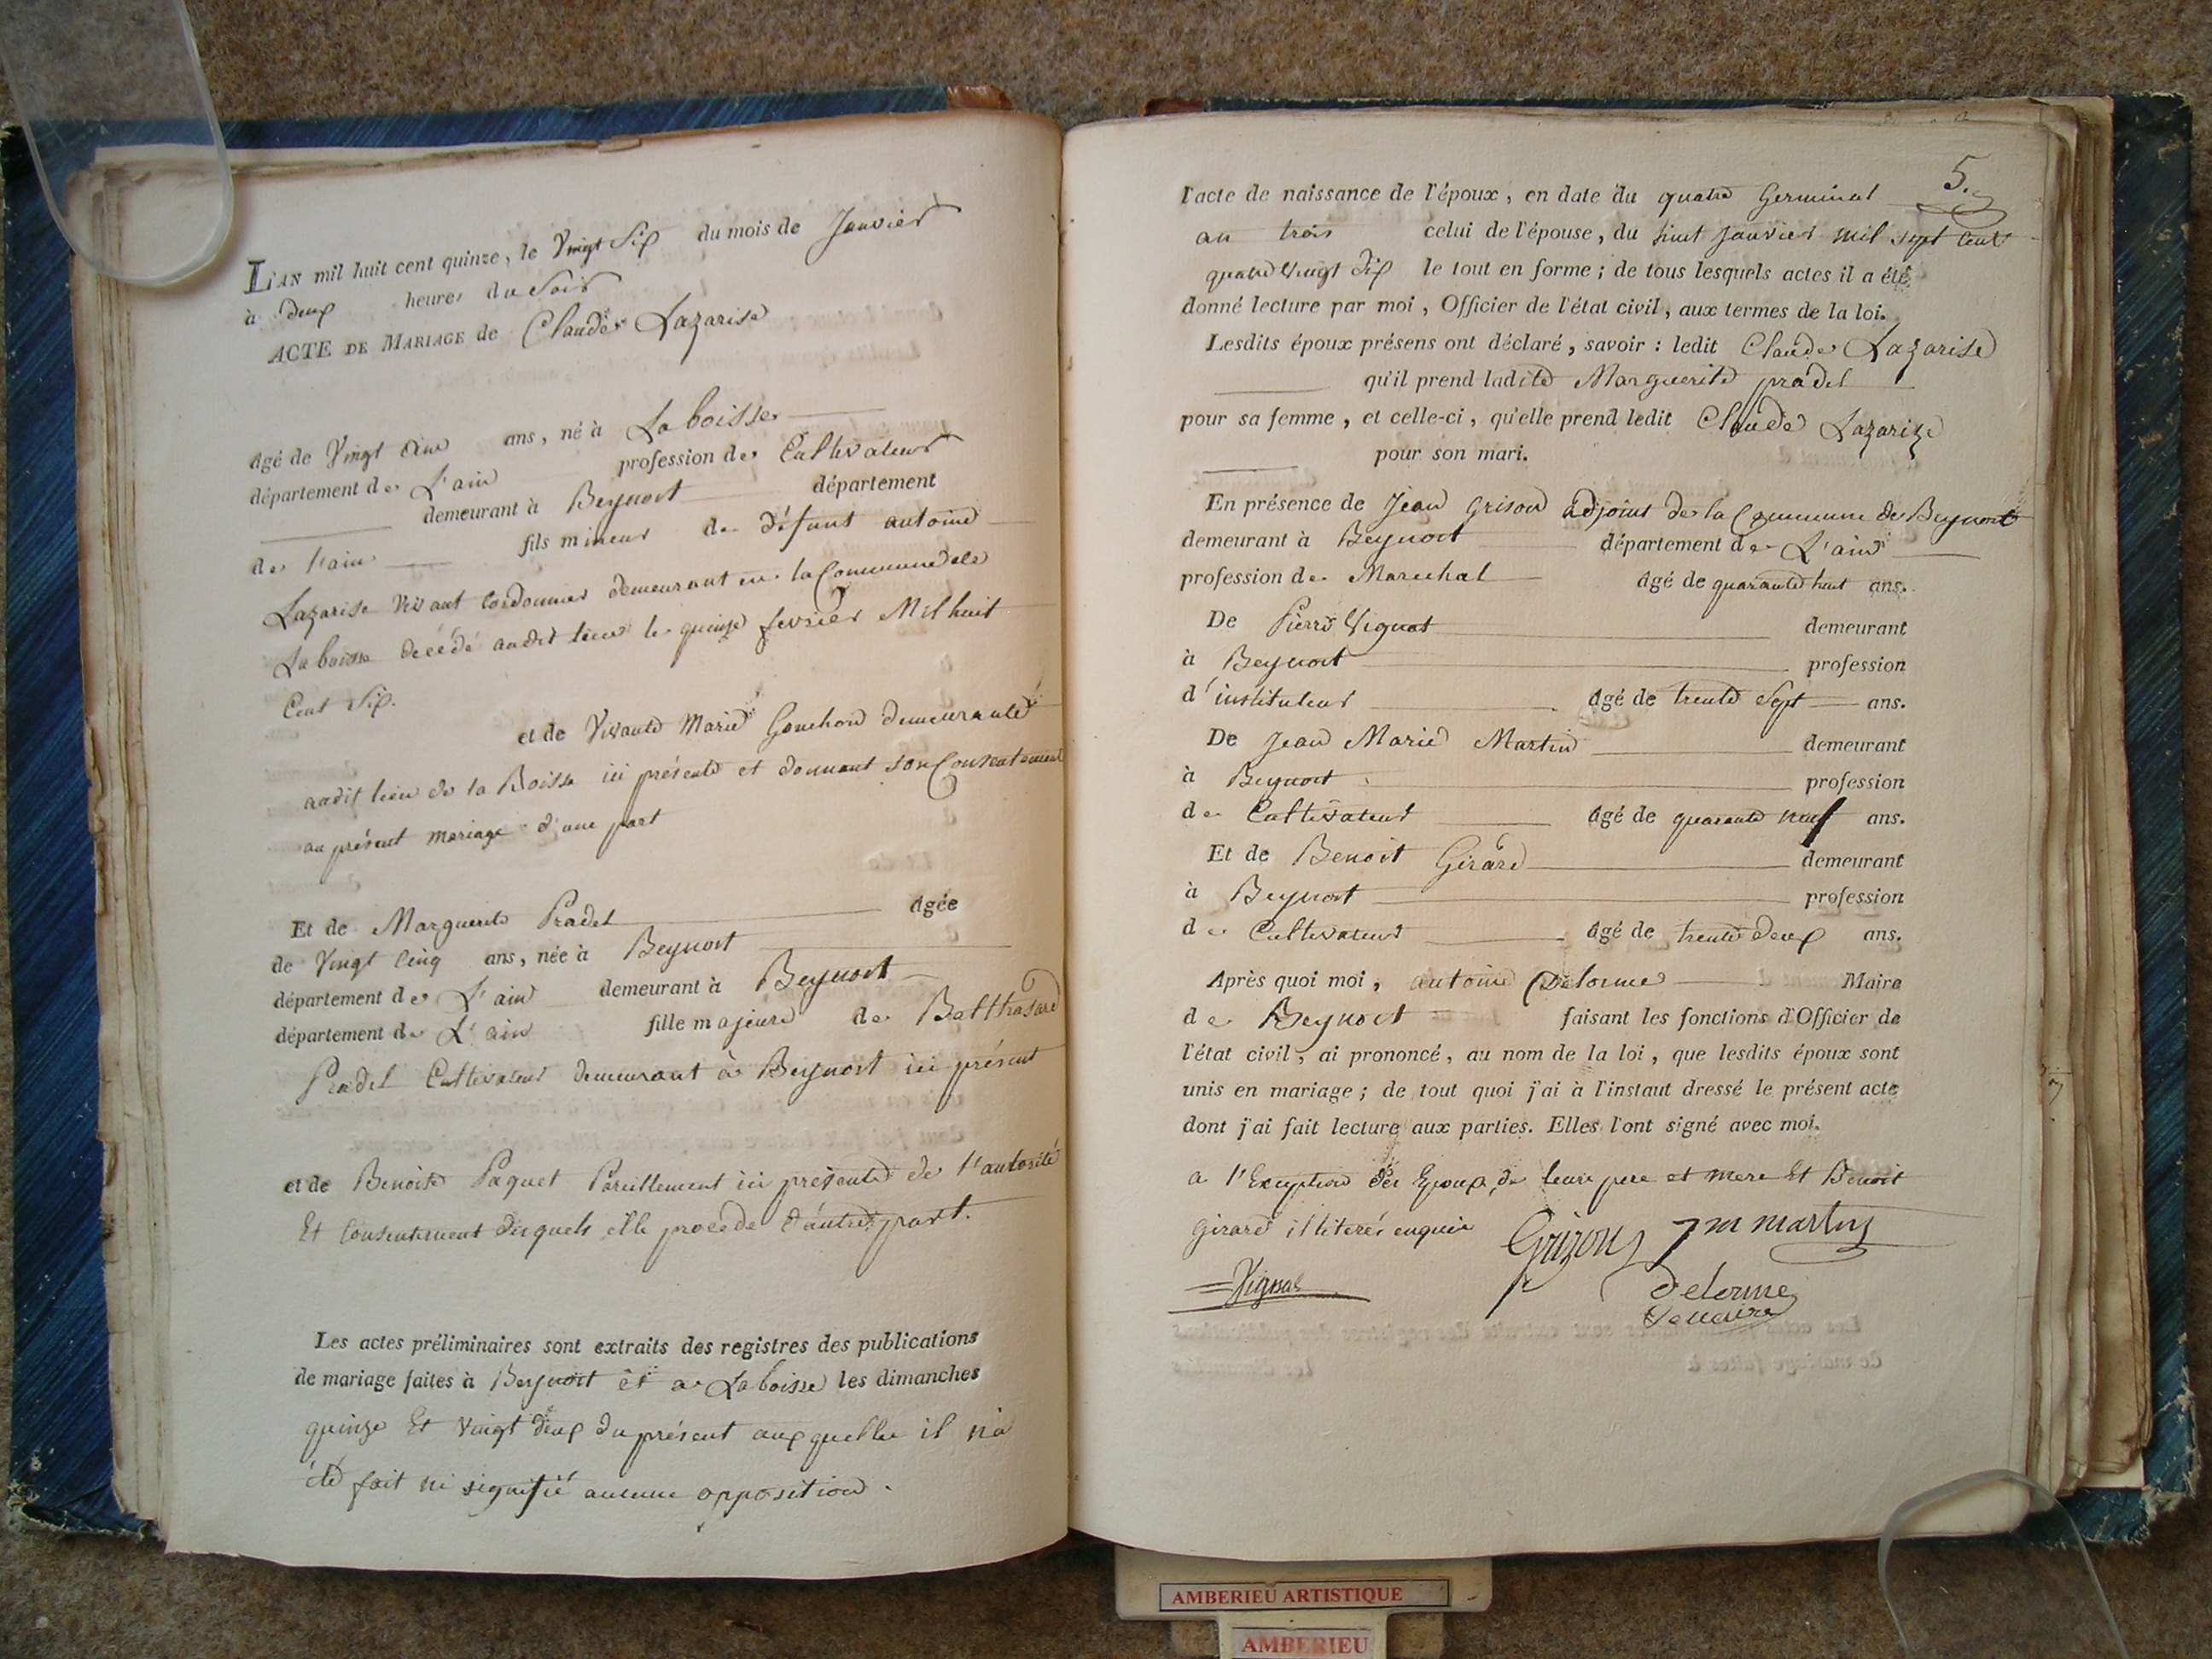 L'AN mil huit cent quinze, le Vingt Six du mois de Janvier
à deux heures du Soir
ACTE DE MARIAGE de Claude Lazarise
âgé de Vingt ans, né à La boisse
département de L'ain profession de Cultivateur
demeurant à Beynost département
de l'ain fils mineur de défunt antoine
Lazarise Vivant Cordonnier demeurant en la Commune de
La boisse décédé audit lieu le quinze fevrier Mil huit
Cent Six.
et de Vivante Marie Gonchon demeurante
audit lieu de la Boisse ici présente et donnant son Consentement
au présent mariage d'une part
Et de Marguerite Pradel âgée
de Vingt Cinq ans, née à Beynost
département de L'ain demeurant à Beynost
département de L'ain fille majeure de Balthasard
Pradel Cultivateur demeurant à Beynost ici présent
et de Benoite Paquet Pareillement ici présente de l'autorité
Et Consentement desquels elle procede d'autre part.
Les actes préliminaires sont extraits des registres des publications
de mariage faites à Beynost et a La boisse les dimanches
quinze Et Vingt deux du présent aux quelles il n'a
été fait ni signifié aucune opposition.
5.
l'acte de naissance de l'époux, en date du quatre Germinal
an trois celui de l'épouse, du huit Janvier mil sept Cent
quatre Vingt dix le tout en forme; de tous lesquels actes il a été
donné lecture par moi, Officier de l'état civil, aux termes de la loi.
Lesdits époux présens ont déclaré, savoir: ledit Claude Lazarise
qu'il prend ladite Marguerite pradel
pour sa femme, et celle-ci, qu'elle prend ledit Claude Lazarize
pour son mari.
En présence de Jean Grison adjoint de la Commune de Beynost
demeurant à Beynost département de L'ain
profession de Marechal âgé de quarante huit ans.
De Pierre Vignat demeurant
à Beynost profession
d'instituteur âgé de trente Sept ans.
De Jean Marie Martin demeurant
à Beynost profession
de Cultivateur âgé de quarante neuf ans.
Et de Benoit Girard demeurant
à Beynost profession
de Cultivateur âgé de trente deux ans.
Après quoi moi, antoine Delorme Maire
de Beynost faisant les fonctions d'Officier de
l'état civil, ai prononcé, au nom de la loi, que lesdits époux sont
unis en mariage; de tout quoi j'ai à l'instaut dressé le présent acte
dont j'ai fait lecture aux parties. Elles l'ont signé avec moi.
a l'Exception des Epoux, de leurs pere et mere Et Benoit
Girard illiterés enquis Grizon J m martin
Vignat Delorme
maire
AMBERIEU ARTISTIQUE
AMBERIEU